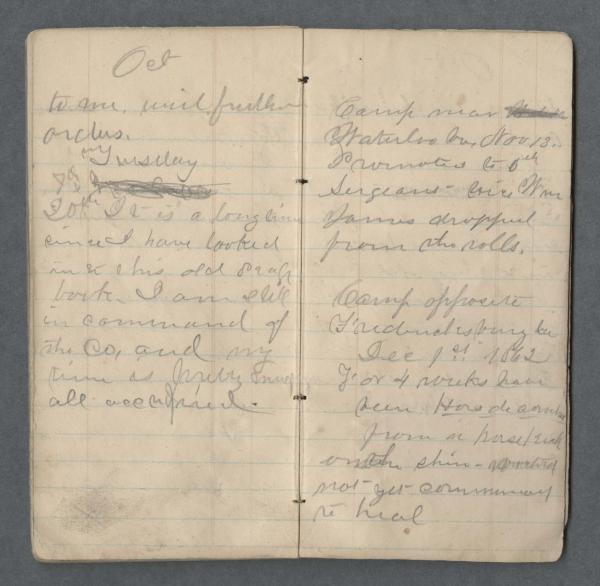 Oct
to me, until further
orders.
Tuesday
20th It is a long time
since I have looked
into this old scrap
book. I am still
in command of
the Co, and my
time is pretty much
all occupied.
Camp near
Waterloo Va, Nov 13.
Promoted to 5th
Sergeant - vice Wm
James dropped
from the rolls.
Camp opposite
Fredericksburg Va
Dec 1st 1862
For 4 weeks have
been Hors de combat
from a horse kick
on the shin -
not yet commenced
to heal